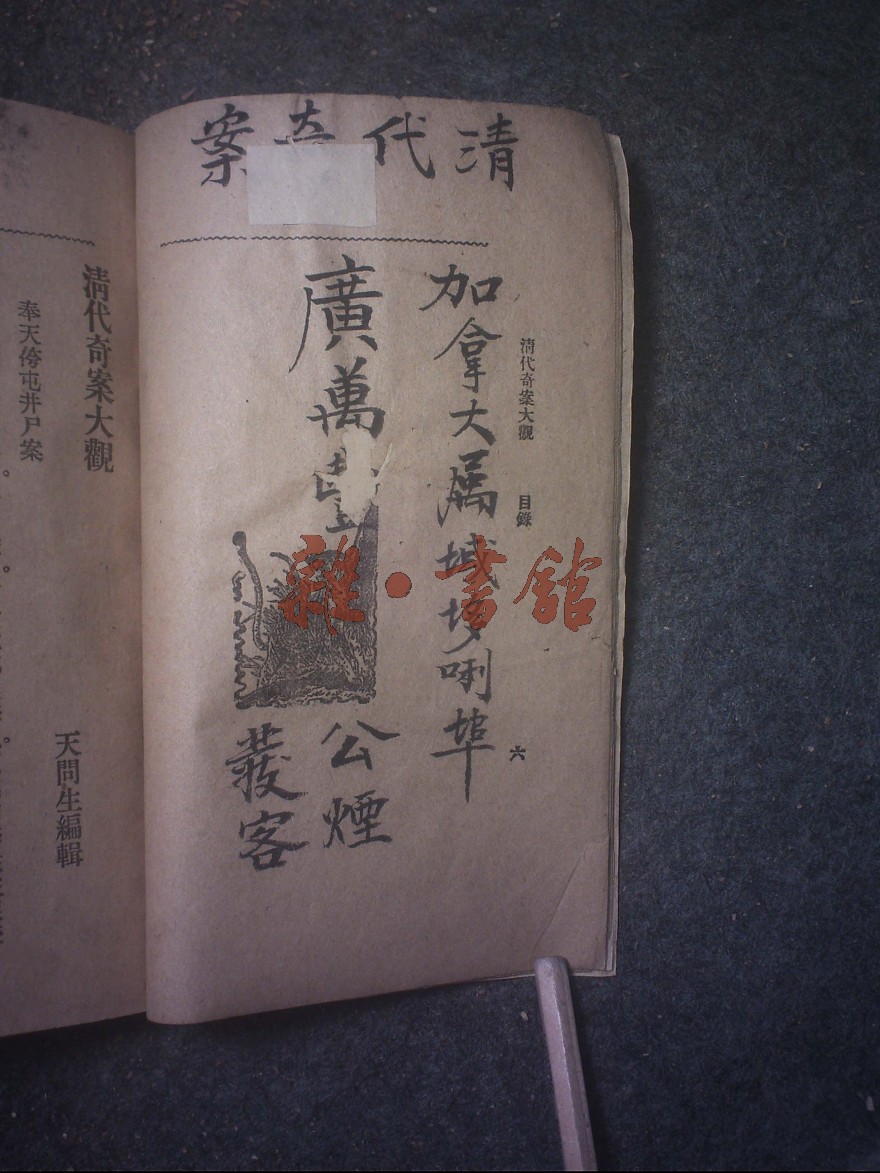 清代奇案
清代奇案大觀 目錄 六
加拿大屬域垑唎埠
廣萬
公煙
發客
雜·書館
清代奇案大觀
天問生編輯
奉天侉屯井尸案